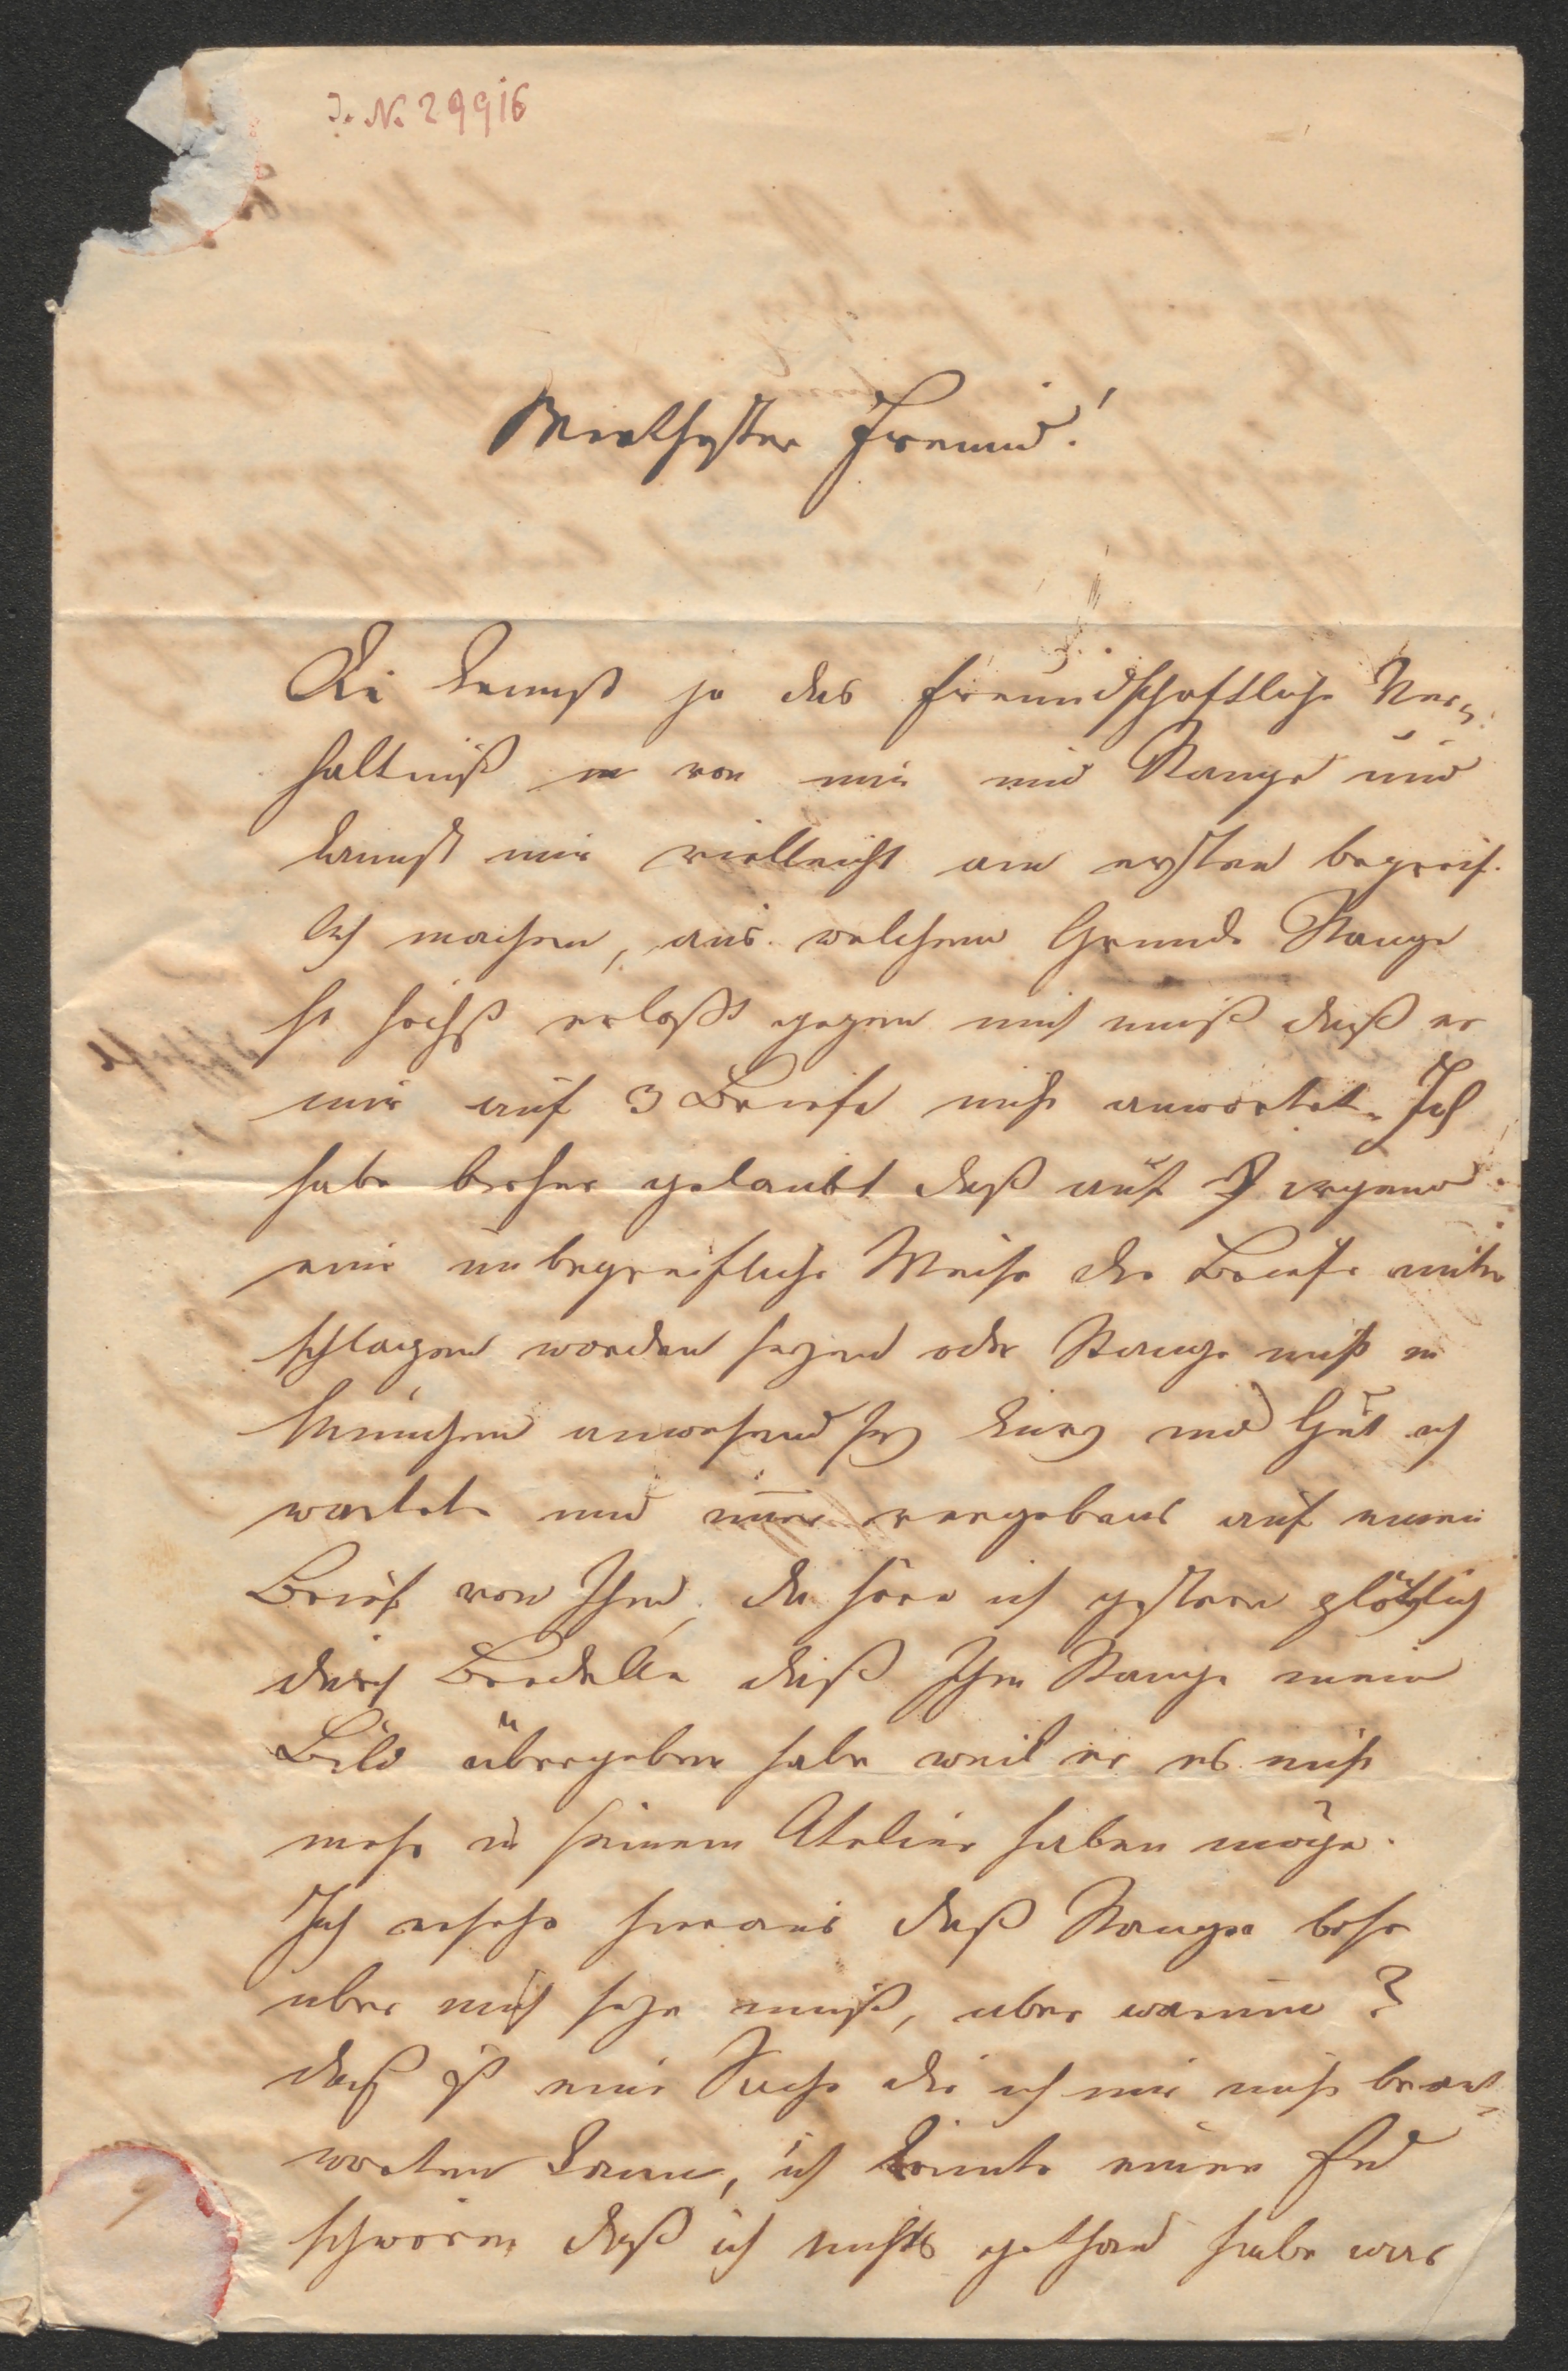 J. N. 29916
Werthester Freund!
Du kennst ja das freundschaftliche Ver¬
hältniß von mir und Stange und
kannst mir vielleicht am ersten begreif¬
lich machen, aus welchem Grunde Stange
so gegen mich muß daß er
mir auf 3 Briefe nicht anwortet. Ich
habe bisher gelaubt daß auf irgend
eine unbegreifliche Weise die Briefe unter
schlagen worden seyen oder Stange nicht in
München anwesend sey kurz und Gut ich
wartete und immer vergebens auf einen
Brief von Ihm, da höre ich gestern plötzlich
durch daß Ihm Stange mein
Bild übergeben habe weil er es nicht
mehr in seinem Atelier haben möge.
Ich ersehe hieraus daß Stange böse
über mich seyn muß, aber warum?
daß ist eine Sache die ich mir nicht beant¬
worten kann, ich könnte einen Eid
schwören daß ich nichts gethan habe was